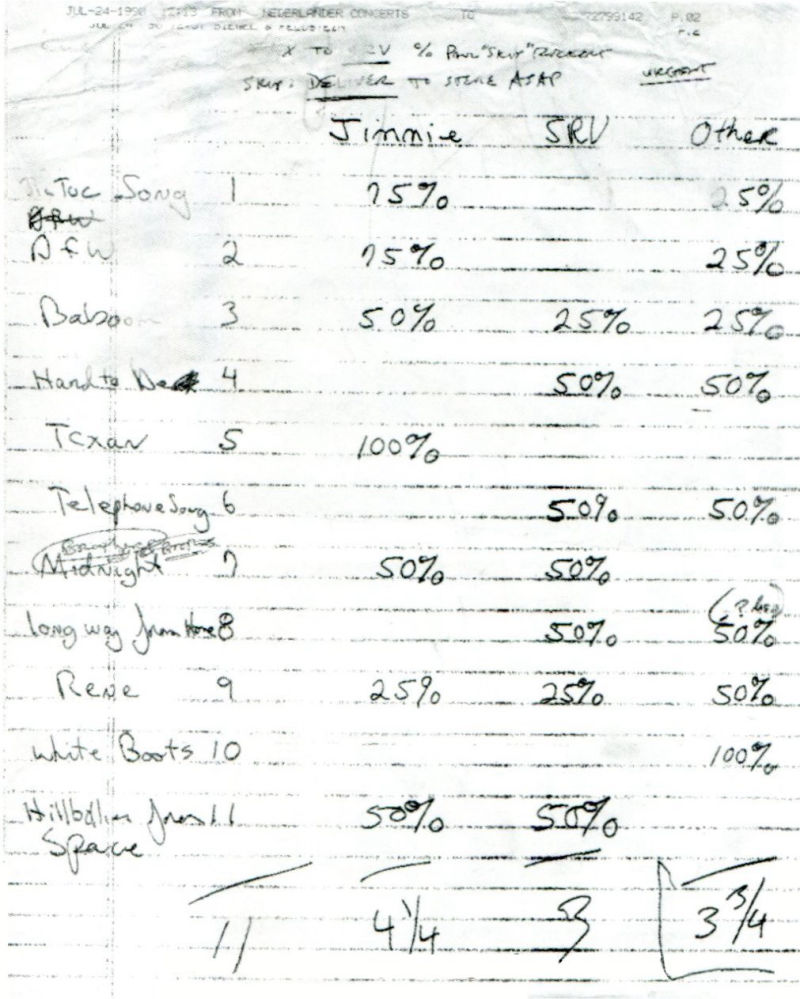 JUL-24-1990 12:13 FROM NEDERLANDER CONCERTS TO 72799142 P.02
P.2
X TO SRV % Paul "Skip" Rickert
SKIP: DELIVER TO STEVE ASAP URGENT
Jimmie SRV Other
Tic Toc Song 1 75% 25%
D/FW
D/FW 2 75% 25%
Baboom 3 50% 25% 25%
Hard to Be 4 50% 50%
Texan 5 100%
Telephone Song 6 50% 50%
Brothers
Midnight 7 50% 50%
long way from Home 8 50% 50%
Rene 9 25% 25% 50%
White Boots 10 100%
Hillbillies from 11 50% 50%
Space
11 4 1/4 3 3 3/4